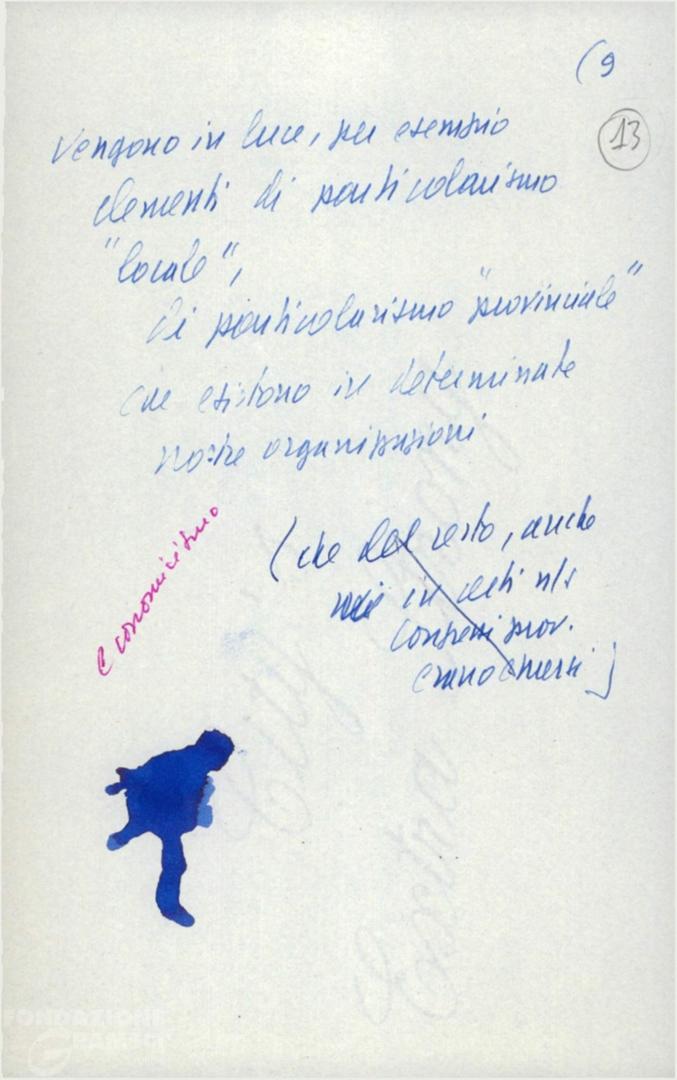 (9
13
Vengono in luce, per esempio
elementi di particolarismo
"locale",
di particolarismo "provinciale"
che esistono in determinate
nostre organizzazioni
economicismo
(che del resto, anche
in certi n/s
congressi prov.
erano emersi)
Extra Strong
FONDAZIONE
GRAMSCI